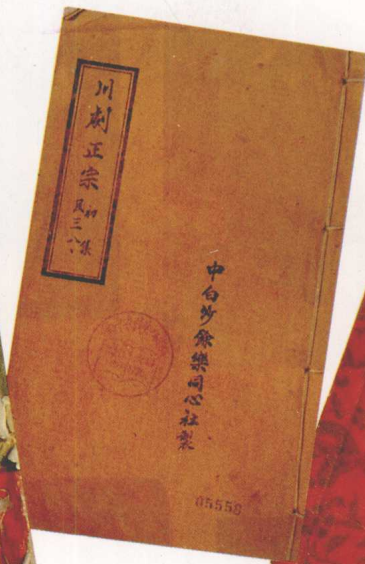 川剧正宗
初集
民三八、
中白沙餘樂同心社製
05558